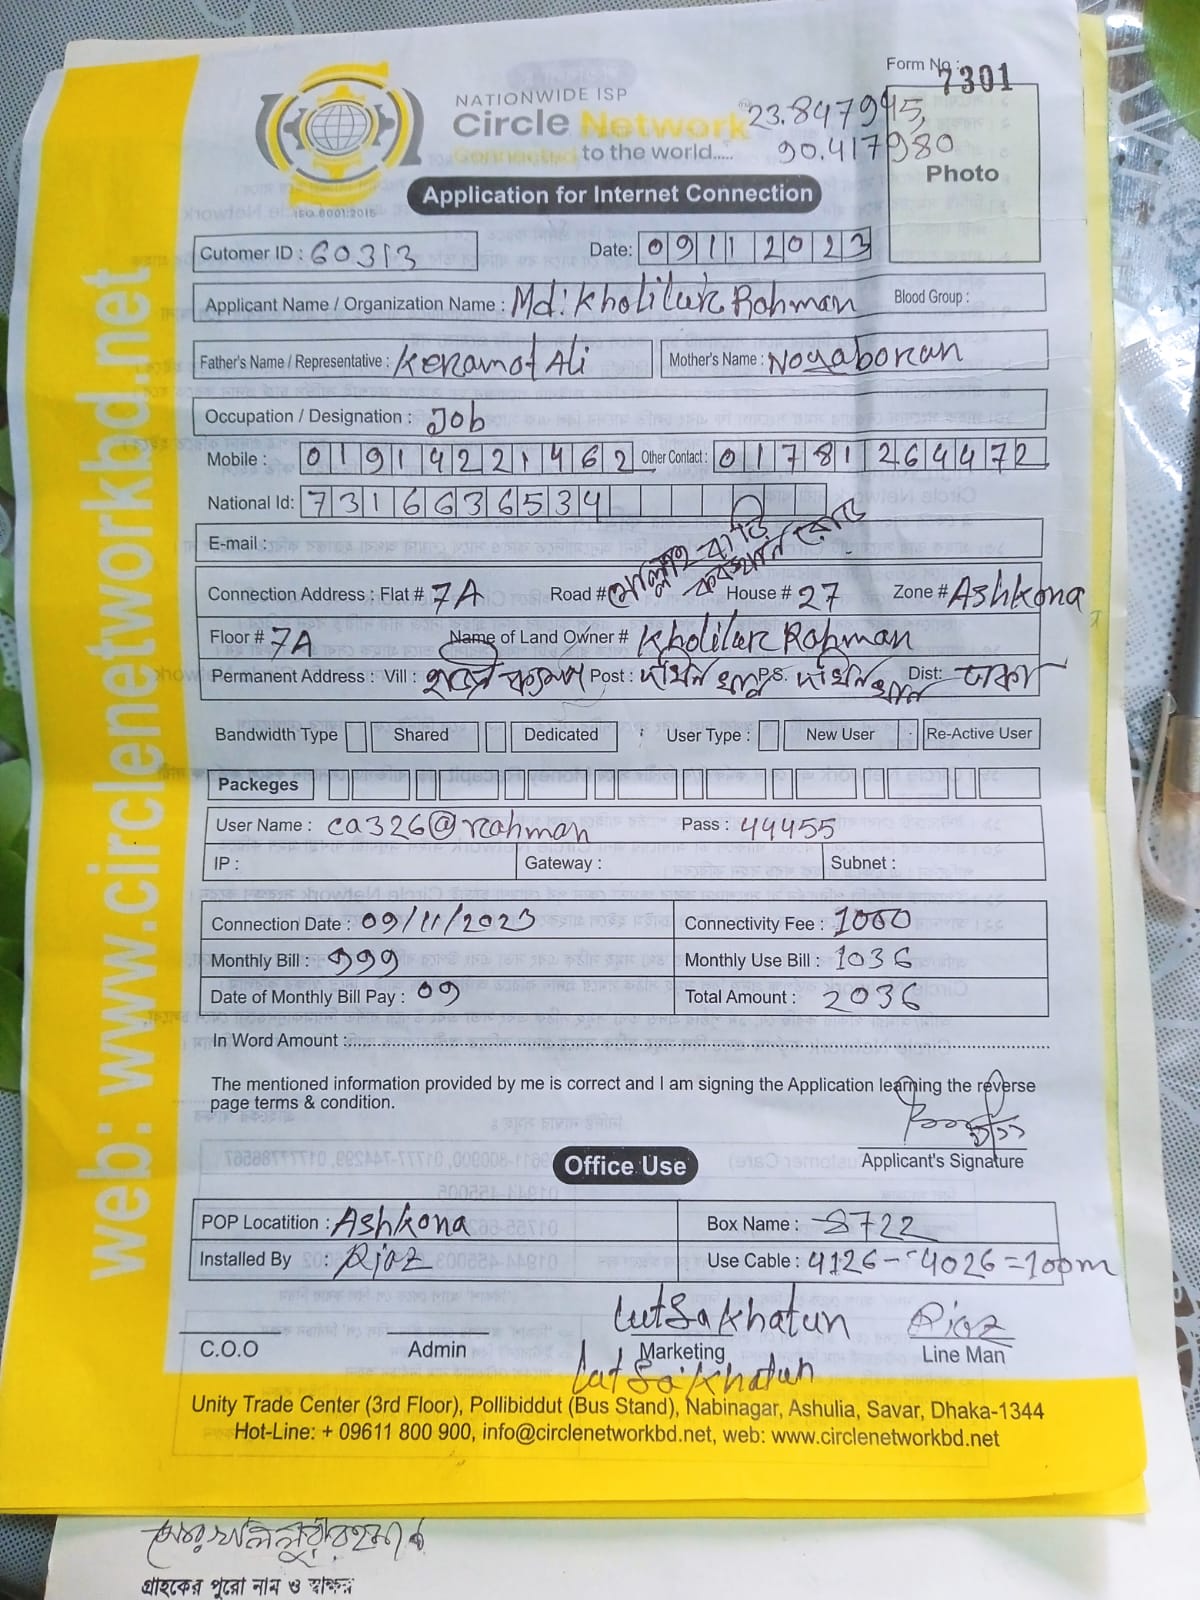 Form No : 7301
NATIONWIDE ISP
Circle Network
Connected to the world.....
ISO 9001:2015
23.847945,
90.417980
Photo
Application for Internet Connection
Cutomer ID : 60313 Date: 09112023
Applicant Name / Organization Name : Md: Kholilur Rahman Blood Group :
Father's Name / Representative : Keramot Ali Mother's Name : Noyaboran
Occupation / Designation : Job
Mobile : 01914221462 Other Contact : 01781264472
National Id: 7316636534
E-mail :
Connection Address : Flat # 7A Road # House # 27 Zone # Ashkona
Floor # 7A Name of Land Owner # Kholilur Rahman
Permanent Address : Vill : Post : দক্ষিন খান P.S. দক্ষিন খান Dist: ঢাকা
Bandwidth Type Shared Dedicated User Type : New User Re-Active User
Packeges
User Name : ca326@rahman Pass : 44455
IP : Gateway : Subnet :
Connection Date : 09/11/2023 Connectivity Fee : 1000
Monthly Bill : 999 Monthly Use Bill : 1036
Date of Monthly Bill Pay : 09 Total Amount : 2036
In Word Amount :
The mentioned information provided by me is correct and I am signing the Application learning the reverse
page terms & condition.
Applicant's Signature
Office Use
POP Locatition : Ashkona Box Name : S722
Installed By : Riaz Use Cable : 4126 - 4026 = 100m
Lutsa Khatun Riaz
C.O.O Admin Marketing Line Man
Lutsa Khatun
Unity Trade Center (3rd Floor), Pollibiddut (Bus Stand), Nabinagar, Ashulia, Savar, Dhaka-1344
Hot-Line: + 09611 800 900, info@circlenetworkbd.net, web: www.circlenetworkbd.net
web: www.circlenetworkbd.net
গ্রাহকের পুরো নাম ও স্বাক্ষর